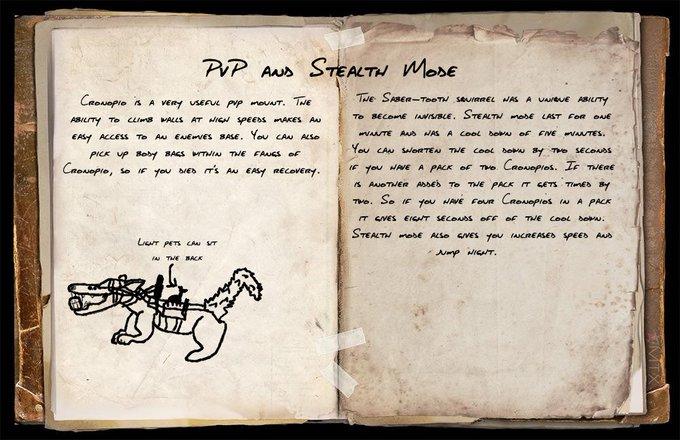 PvP and Stealth Mode
Cronopio is a very useful pvp mount. The
ability to climb walls at high speeds makes an
easy access to an enemies base. You can also
pick up body bags within the fangs of
Cronopio, so if you died it's an easy recovery.
Light pets can sit
in the back
The Saber-tooth squirrel has a unique ability
to become invisible. Stealth mode last for one
minute and has a cool down of five minutes.
You can shorten the cool down by two seconds
if you have a pack of two Cronopios. If there
is another added to the pack it gets timed by
two. So if you have four Cronopios in a pack
it gives eight seconds off of the cool down.
Stealth mode also gives you increased speed and
jump hight.